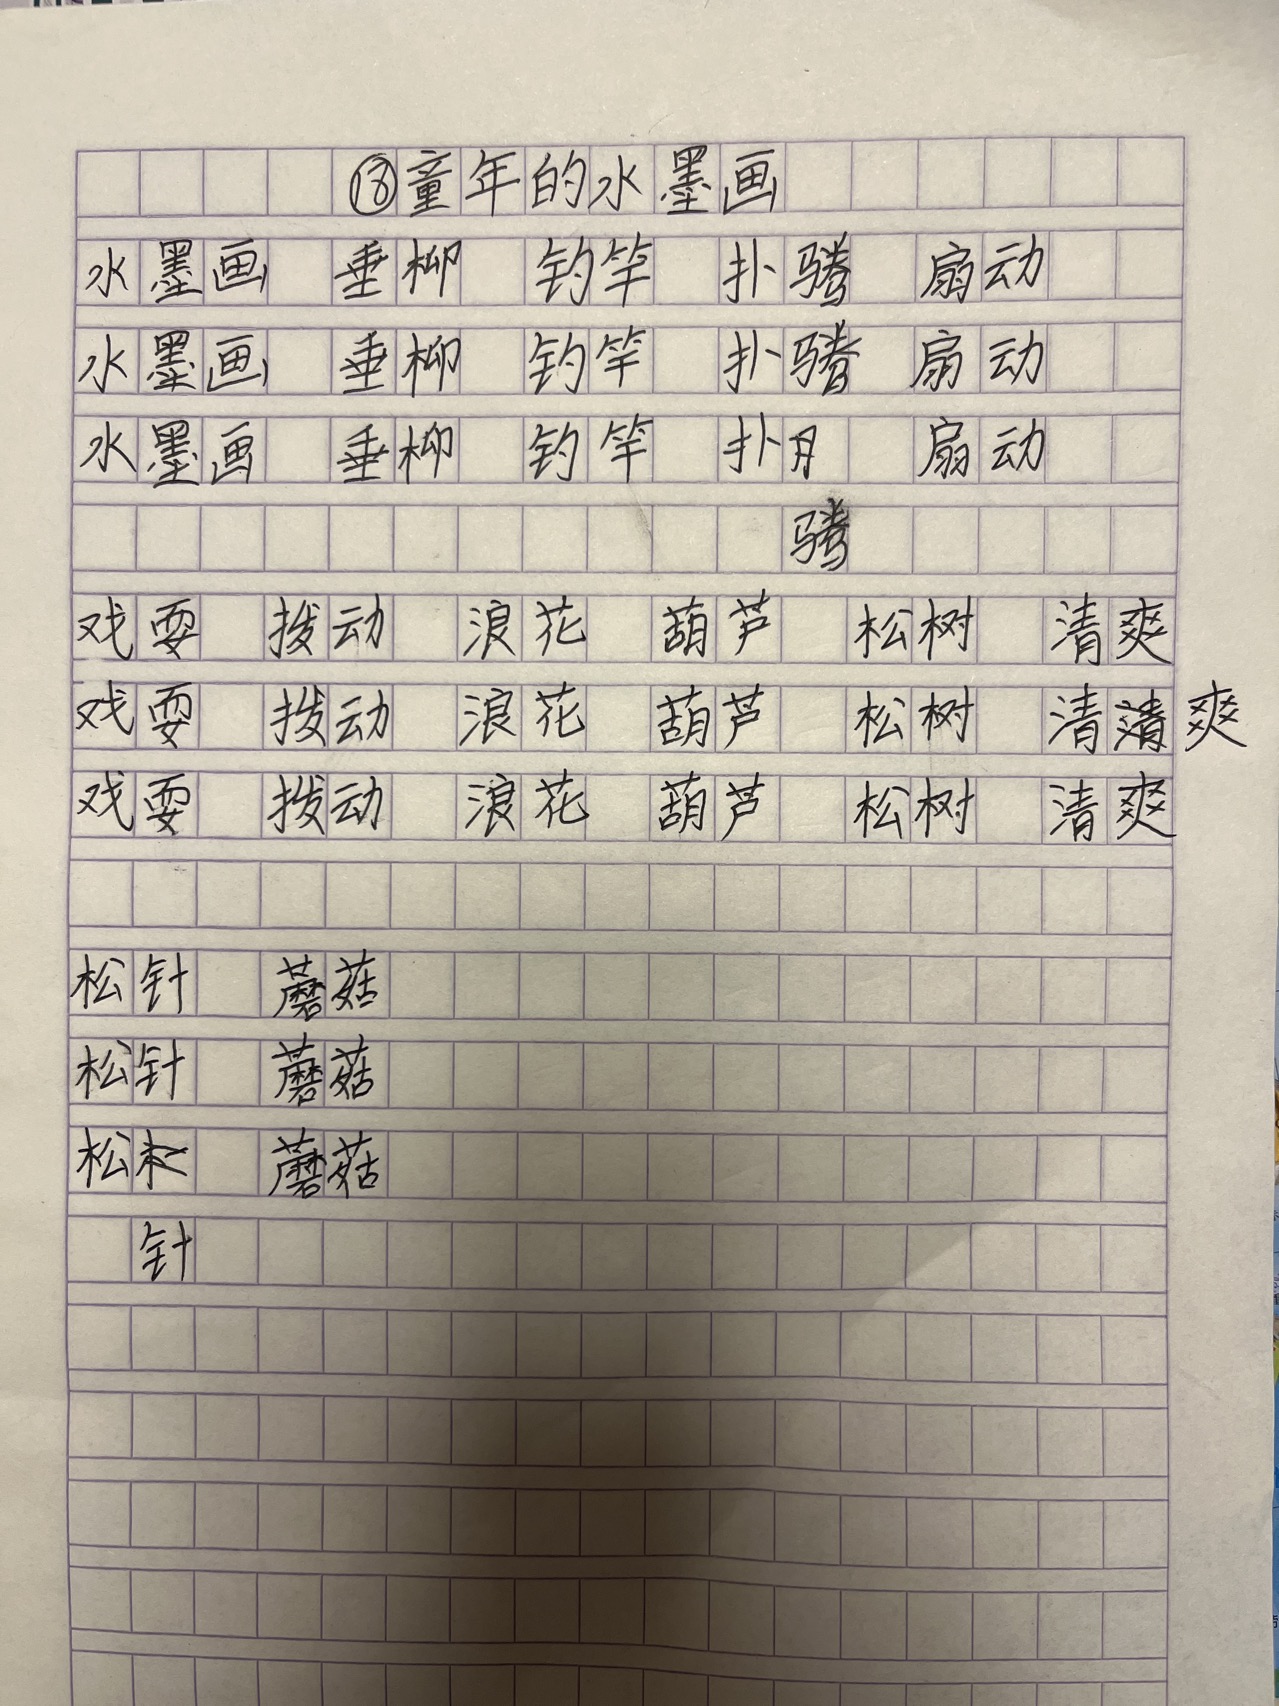 ⑱童年的水墨画
水墨画 垂柳 钓竿 扑腾 扇动
水墨画 垂柳 钓竿 扑腾 扇动
水墨画 垂柳 钓竿 扑月 扇动
腾
戏耍 拨动 浪花 葫芦 松树 清爽
戏耍 拨动 浪花 葫芦 松树 清清爽
戏耍 拨动 浪花 葫芦 松树 清爽
松针 蘑菇
松针 蘑菇
松 蘑菇
针